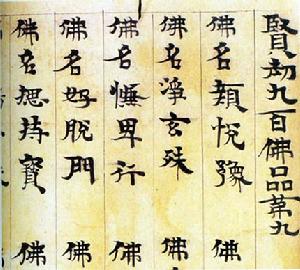 賢劫九百佛品第九
佛名顏悅豫 佛
佛名淨玄殊 佛
佛名悕畢行 佛
佛名好脫門 佛
佛名愍持寶 佛